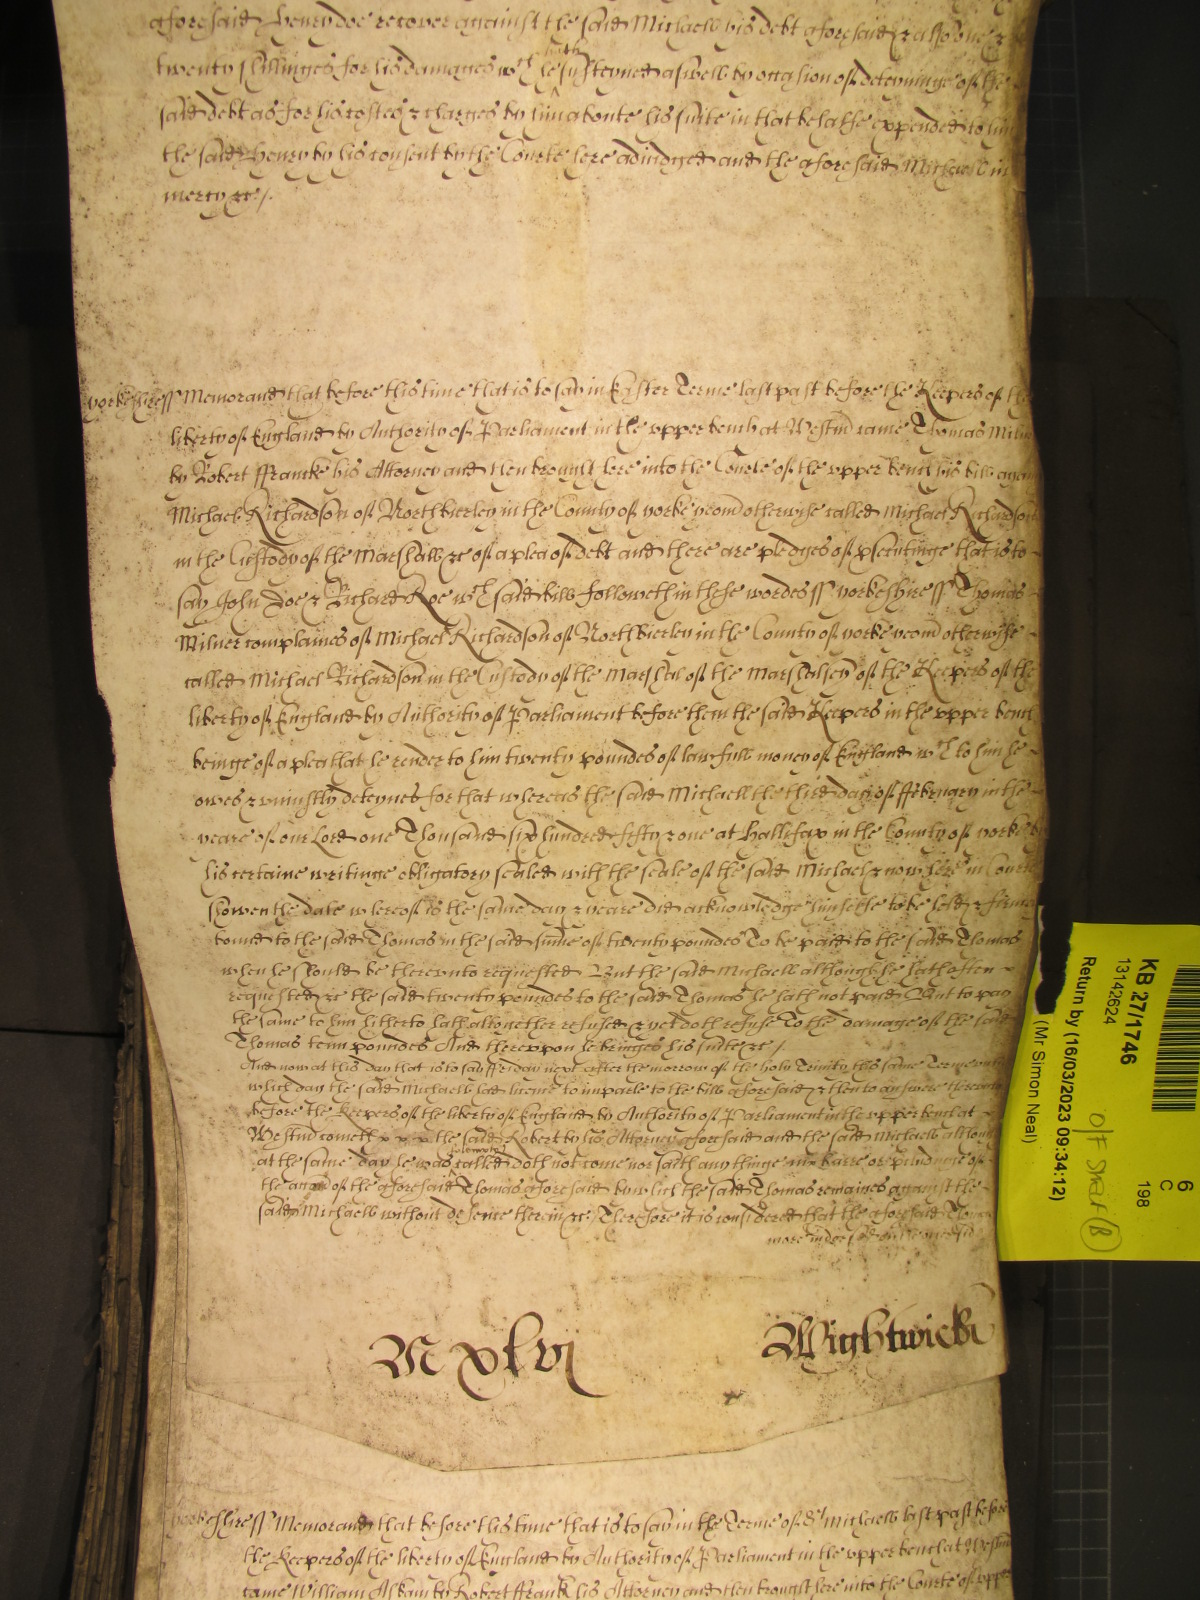 aforesaid Henry doe recover against the said Michaell his debt aforesaid & also one &
twenty shillinges for his damages wch he hath susteyned aswell by occasion of deteyninge of the
said debt as for his costes & charges by him aboute his suite in that behalfe expended to him
the said Henry by his consent by the Courte here adiudged and the aforesaid Michaell in
mercy &c /.
yorkeshire ss Memorand that before this time that is to say in Easter Terme last past before the Keepers of the
liberty of England by Authority of Parliament in the upper bench at Westmr came Thomas Milner
by Robert ffrancke his Attorney and then brought here into the Courte of the upper bench his bill against
Michael Richardson of Northbierley in the County of yorke yeom otherwise called Michael Richardson
in the Custody of the Marshall &c of a plea of debt and there are pledges of psecutinge that is to
say John Doe & Richard Roe wch said bill followeth in these wordes ss yorkeshire ss Thomas
Milner complaines of Michael Richardson of Northbierley in the County of yorke yeom otherwise
called Michael Richardson in the Custody of the Marshal of the Marshalsey of the Keepers of the
liberty of England by Authority of Parliament before them the said Keepers in the upper bench
beinge of a plea that he render to him twenty poundes of lawfull money of England wch to him he
owes & uniustly deteynes for that whereas the said Michaell the third day of ffebruary in the
yeare of our Lord one Thousand six hundred fifty & one at Hallifax in the County of yorke by
his certaine writinge obligatory sealed with the seale of the said Michael & now here in Courte
showen the date whereof is the same day & yeare did acknowledge himselfe to be held & firmely
bound to the said Thomas in the said summe of twenty poundes To be paid to the said Thomas
when he should be thereunto requested But the said Michaell although he hath often
requested &c the said twenty poundes to the said Thomas he hath not paid But to pay
the same to him hitherto hath altogether refused & yet doth refuse To the damage of the said
Thomas tenn poundes And thereupon he bringes his suite &c /
And now at this day that is to say ffriday next after the morrow of the holy Trinity this same Terme untill
which day the said Michaell had licence to imparle to the bill aforesaid & then to answere thereunto
before the Keepers of the liberty of England by Authority of Parliament in the upper bench at
Westmr cometh the said Robert by his Attorney aforesaid and the said Michaell although
at the same day he was solemply called doth not come nor saith any thinge in barre or of
the accon of the aforesaid Thomas aforesaid by which the said Thomas remaines against the
said Michaell without defence therein &c Therefore it is considered that the aforesaid Thomas
more
M xlvj
Wightwicke
yorkeshire ss Memorand that before this time that is to say in the Terme of St Michaell last past before
the Keepers of the liberty of England by Authority of Parliament in the upper bench at Westmr
came William by Robert ffrank his Attorney and then brought here into the Courte of upper
KB 27/1746
13142624
Return by (16/03/2023 09:34:12)
(Mr Simon Neal)
6
C
198
O/F Shelf (B)